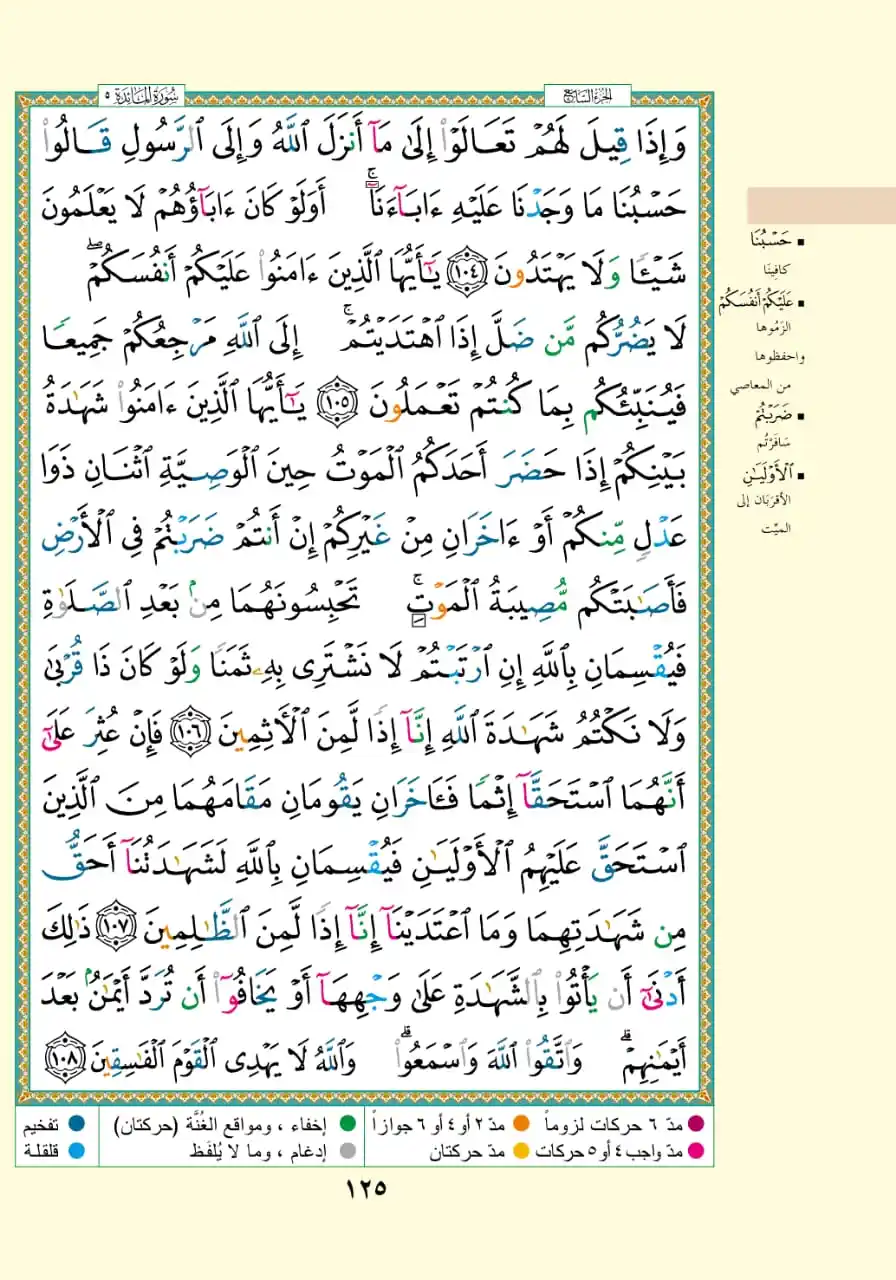 سُورَةُ المَائِدَة ٥
الجُزْءُ السَّابِعُ
وَإِذَا قِيلَ لَهُمۡ تَعَالَوۡاْ إِلَىٰ مَآ أَنزَلَ ٱللَّهُ وَإِلَى ٱلرَّسُولِ قَالُواْ
حَسۡبُنَا مَا وَجَدۡنَا عَلَيۡهِ ءَابَآءَنَآۚ أَوَلَوۡ كَانَ ءَابَآؤُهُمۡ لَا يَعۡلَمُونَ
شَيۡـٔٗا وَلَا يَهۡتَدُونَ ١٠٤ يَٰٓأَيُّهَا ٱلَّذِينَ ءَامَنُواْ عَلَيۡكُمۡ أَنفُسَكُمۡۖ
لَا يَضُرُّكُم مَّن ضَلَّ إِذَا ٱهۡتَدَيۡتُمۡۚ إِلَى ٱللَّهِ مَرۡجِعُكُمۡ جَمِيعٗا
فَيُنَبِّئُكُم بِمَا كُنتُمۡ تَعۡمَلُونَ ١٠٥ يَٰٓأَيُّهَا ٱلَّذِينَ ءَامَنُواْ شَهَٰدَةُ
بَيۡنِكُمۡ إِذَا حَضَرَ أَحَدَكُمُ ٱلۡمَوۡتُ حِينَ ٱلۡوَصِيَّةِ ٱثۡنَانِ ذَوَا
عَدۡلٖ مِّنكُمۡ أَوۡ ءَاخَرَانِ مِنۡ غَيۡرِكُمۡ إِنۡ أَنتُمۡ ضَرَبۡتُمۡ فِي ٱلۡأَرۡضِ
فَأَصَٰبَتۡكُم مُّصِيبَةُ ٱلۡمَوۡتِۚ تَحۡبِسُونَهُمَا مِنۢ بَعۡدِ ٱلصَّلَوٰةِ
فَيُقۡسِمَانِ بِٱللَّهِ إِنِ ٱرۡتَبۡتُمۡ لَا نَشۡتَرِي بِهِۦ ثَمَنٗا وَلَوۡ كَانَ ذَا قُرۡبَىٰ
وَلَا نَكۡتُمُ شَهَٰدَةَ ٱللَّهِ إِنَّآ إِذٗا لَّمِنَ ٱلۡأٓثِمِينَ ١٠٦ فَإِنۡ عُثِرَ عَلَىٰٓ
أَنَّهُمَا ٱسۡتَحَقَّآ إِثۡمٗا فَـَٔاخَرَانِ يَقُومَانِ مَقَامَهُمَا مِنَ ٱلَّذِينَ
ٱسۡتَحَقَّ عَلَيۡهِمُ ٱلۡأَوۡلَيَٰنِ فَيُقۡسِمَانِ بِٱللَّهِ لَشَهَٰدَتُنَآ أَحَقُّ
مِن شَهَٰدَتِهِمَا وَمَا ٱعۡتَدَيۡنَآ إِنَّآ إِذٗا لَّمِنَ ٱلظَّٰلِمِينَ ١٠٧ ذَٰلِكَ
أَدۡنَىٰٓ أَن يَأۡتُواْ بِٱلشَّهَٰدَةِ عَلَىٰ وَجۡهِهَآ أَوۡ يَخَافُوٓاْ أَن تُرَدَّ أَيۡمَٰنُۢ بَعۡدَ
أَيۡمَٰنِهِمۡۗ وَٱتَّقُواْ ٱللَّهَ وَٱسۡمَعُواْۗ وَٱللَّهُ لَا يَهۡدِي ٱلۡقَوۡمَ ٱلۡفَٰسِقِينَ ١٠٨
حَسۡبُنَا
كافِينَا
عَلَيۡكُمۡ أَنفُسَكُمۡ
الزمُوها
واحفظوها
من المعاصي
ضَرَبۡتُمۡ
سَافَرْتُم
ٱلۡأَوۡلَيَٰنِ
الأقرَبَان إلى
الميِّت
مدّ ٦ حركات لزوماً
مدّ ٢ أو ٤ أو ٦ جوازاً
إخفاء ، ومواقع الغُنَّة (حركتان)
تفخيم
مدّ واجب ٤ أو ٥ حركات
مدّ حركتان
إدغام ، وما لا يُلفَظ
قلقلة
١٢٥